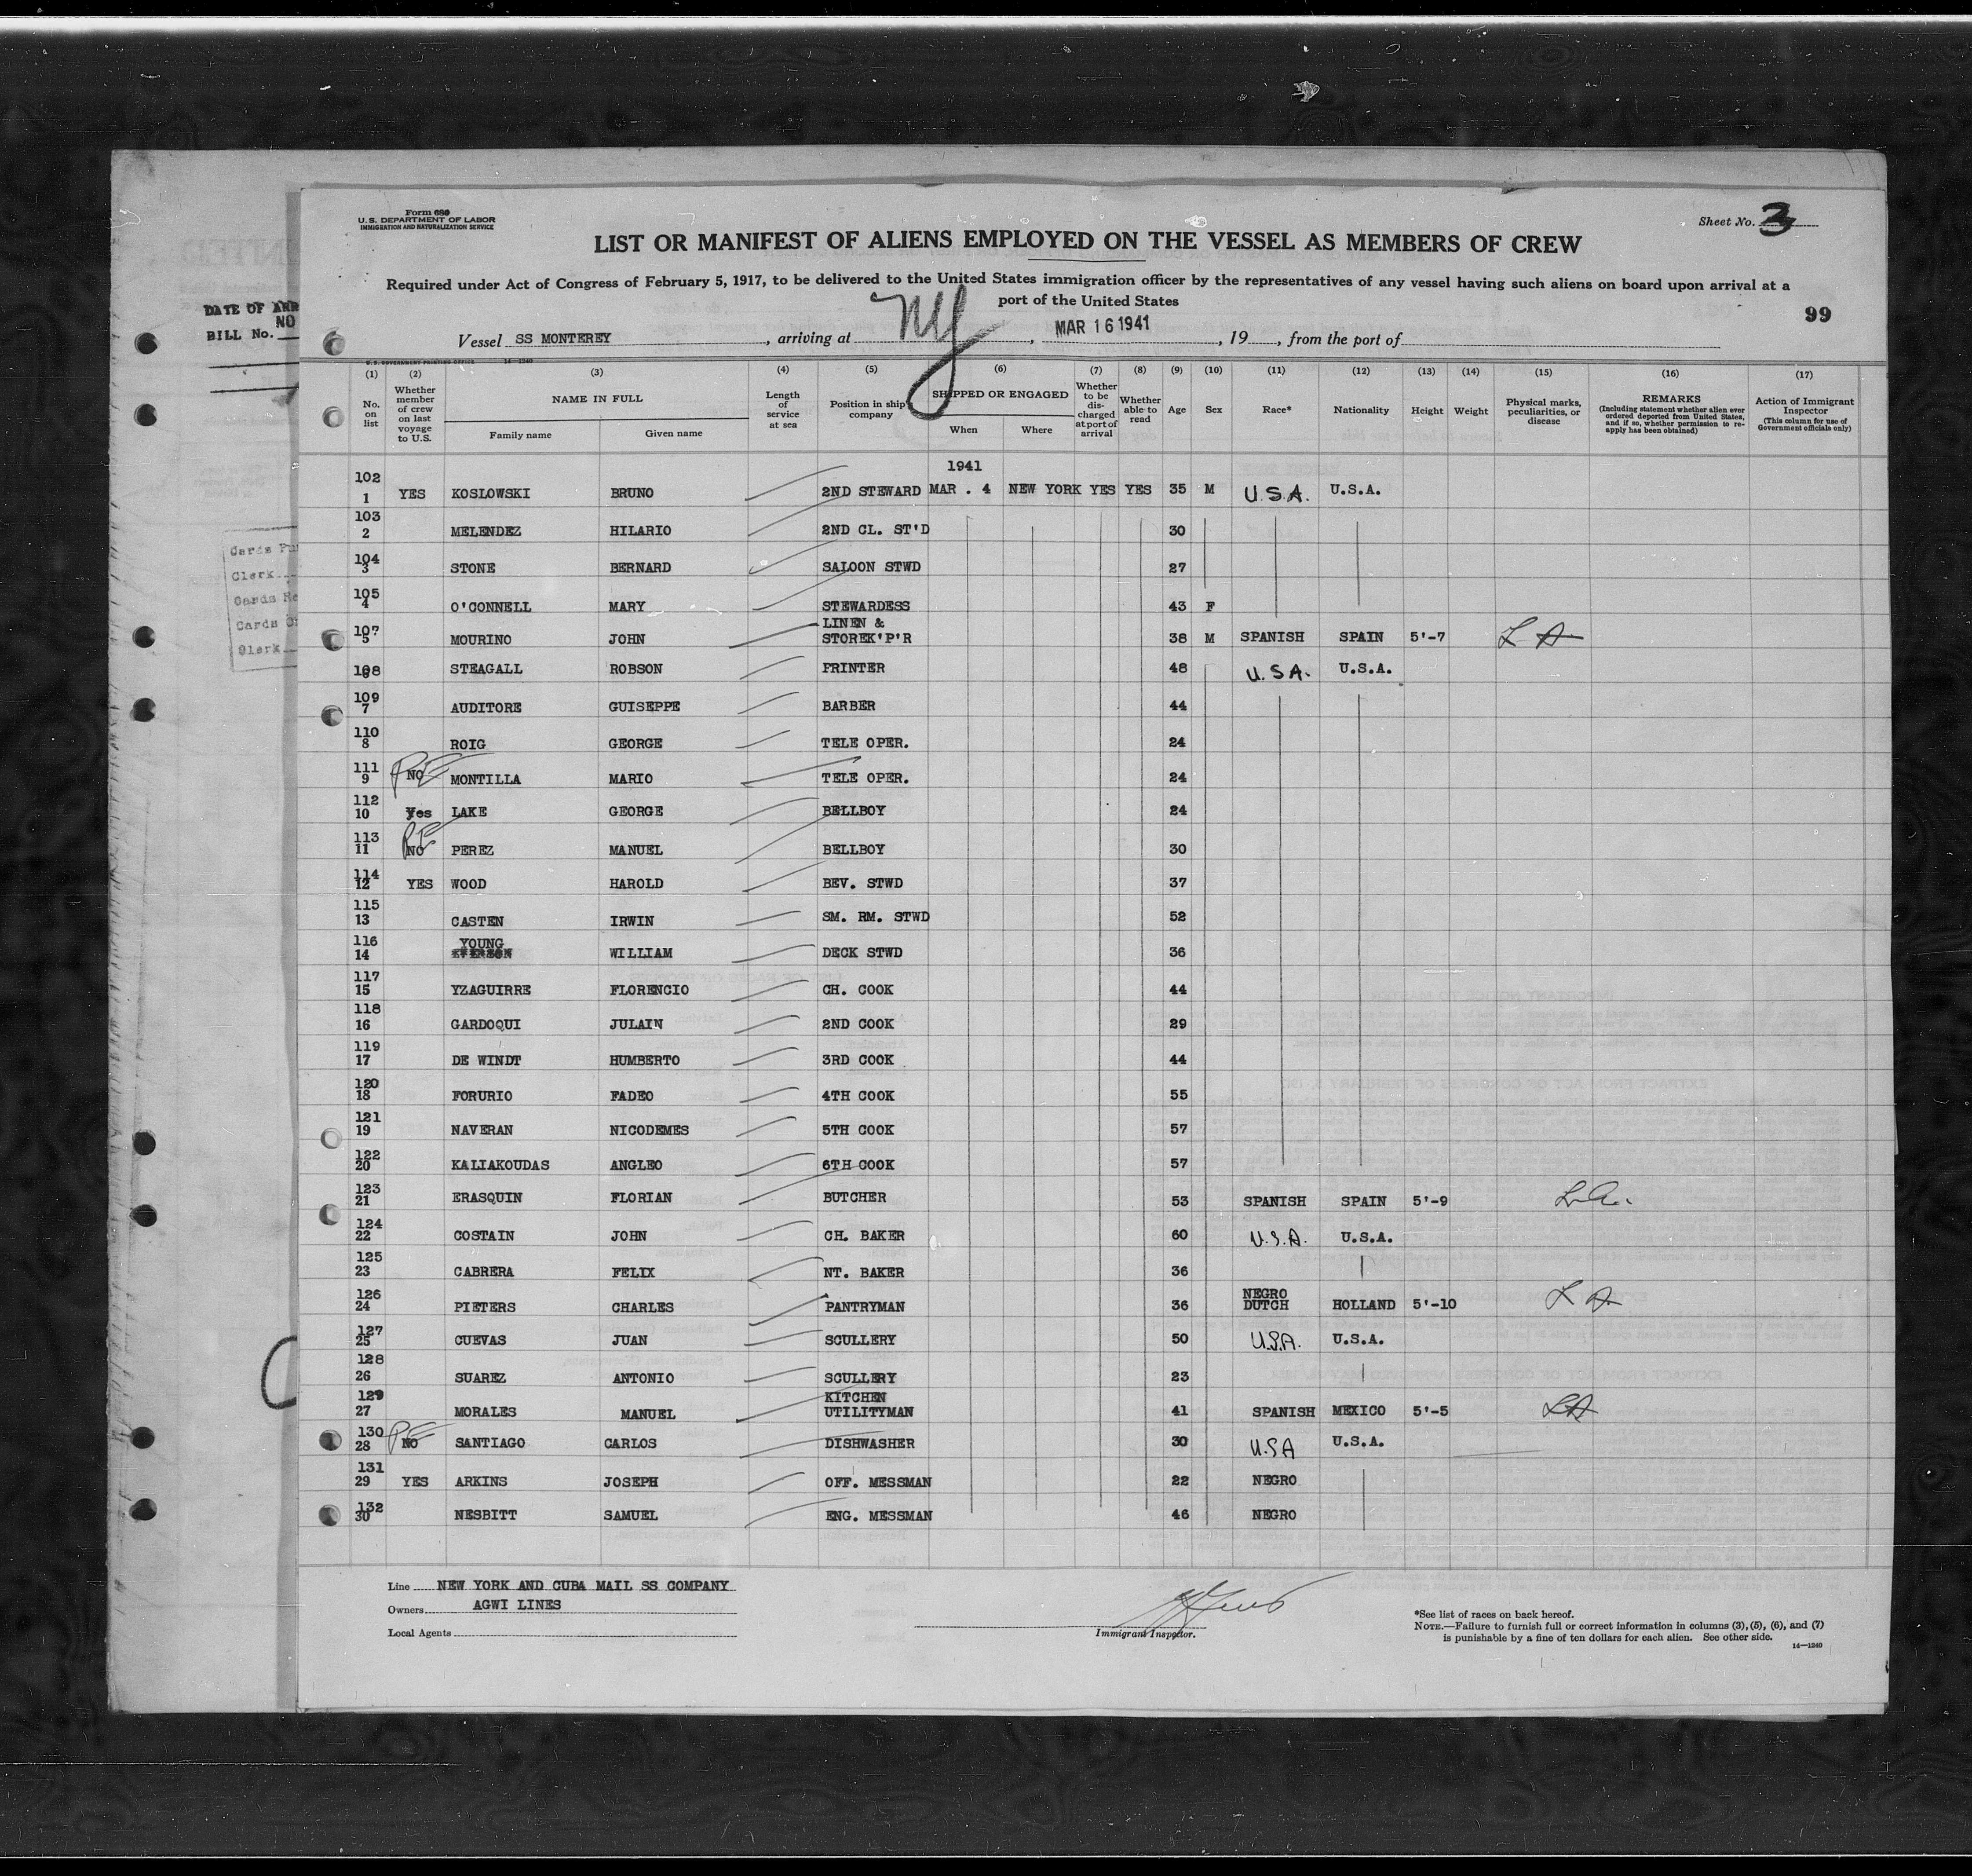 Form 680
U. S. DEPARTMENT OF LABOR
IMMIGRATION AND NATURALIZATION SERVICE
Sheet No. 3
LIST OR MANIFEST OF ALIENS EMPLOYED ON THE VESSEL AS MEMBERS OF CREW
Required under Act of Congress of February 5, 1917, to be delivered to the United States immigration officer by the representatives of any vessel having such aliens on board upon arrival at a
port of the United States
DATE OF ARR
NO
BILL No.
99
Vessel SS MONTEREY, arriving at NY, MAR 16 1941, 19, from the port of
U. S. GOVERNMENT PRINTING OFFICE 14—1240
(1) (2) (3) (4) (5) (6) (7) (8) (9) (10) (11) (12) (13) (14) (15) (16) (17)
No. on list
Whether member of crew on last voyage to U.S.
NAME IN FULL
Family name Given name
Length of service at sea
Position in ship's company
SHIPPED OR ENGAGED
When Where
Whether to be discharged at port of arrival
Whether able to read
Age Sex Race* Nationality Height Weight
Physical marks, peculiarities, or disease
REMARKS
(Including statement whether alien ever ordered deported from United States, and if so, whether permission to reapply has been obtained)
Action of Immigrant Inspector
(This column for use of Government officials only)
1941
102 1 YES KOSLOWSKI BRUNO 2ND STEWARD MAR . 4 NEW YORK YES YES 35 M U.S.A. U.S.A.
103 2 MELENDEZ HILARIO 2ND CL. ST'D 30
104 3 STONE BERNARD SALOON STWD 27
105 4 O'CONNELL MARY STEWARDESS 43 F
107 5 MOURINO JOHN LINEN & STOREK'P'R 38 M SPANISH SPAIN 5'-7 LA
108 STEAGALL ROBSON PRINTER 48 U.S.A. U.S.A.
109 7 AUDITORE GUISEPPE BARBER 44
110 8 ROIG GEORGE TELE OPER. 24
111 9 NO MONTILLA MARIO TELE OPER. 24
112 10 Yes LAKE GEORGE BELLBOY 24
113 11 NO PEREZ MANUEL BELLBOY 30
114 12 YES WOOD HAROLD BEV. STWD 37
115 13 CASTEN IRWIN SM. RM. STWD 52
116 14 YOUNG WILLIAM DECK STWD 36
117 15 YZAGUIRRE FLORENCIO CH. COOK 44
118 16 GARDOQUI JULAIN 2ND COOK 29
119 17 DE WINDT HUMBERTO 3RD COOK 44
120 18 FORURIO FADEO 4TH COOK 55
121 19 NAVERAN NICODEMES 5TH COOK 57
122 20 KALIAKOUDAS ANGLEO 6TH COOK 57
123 21 ERASQUIN FLORIAN BUTCHER 53 SPANISH SPAIN 5'-9 L.A.
124 22 COSTAIN JOHN CH. BAKER 60 U.S.A. U.S.A.
125 23 CABRERA FELIX NT. BAKER 36
126 24 PIETERS CHARLES PANTRYMAN 36 NEGRO DUTCH HOLLAND 5'-10 LA
127 25 CUEVAS JUAN SCULLERY 50 U.S.A. U.S.A.
128 26 SUAREZ ANTONIO SCULLERY 23
129 27 MORALES MANUEL KITCHEN UTILITYMAN 41 SPANISH MEXICO 5'-5 LA
130 28 NO SANTIAGO CARLOS DISHWASHER 30 U.S.A U.S.A.
131 29 YES ARKINS JOSEPH OFF. MESSMAN 22 NEGRO
132 30 NESBITT SAMUEL ENG. MESSMAN 46 NEGRO
Cards Pu
Clerk
Cards Re
Cards
Clerk
Line NEW YORK AND CUBA MAIL SS COMPANY
Owners AGWI LINES
Local Agents
Immigrant Inspector.
*See list of races on back hereof.
NOTE.—Failure to furnish full or correct information in columns (3), (5), (6), and (7)
is punishable by a fine of ten dollars for each alien. See other side.
14—1240